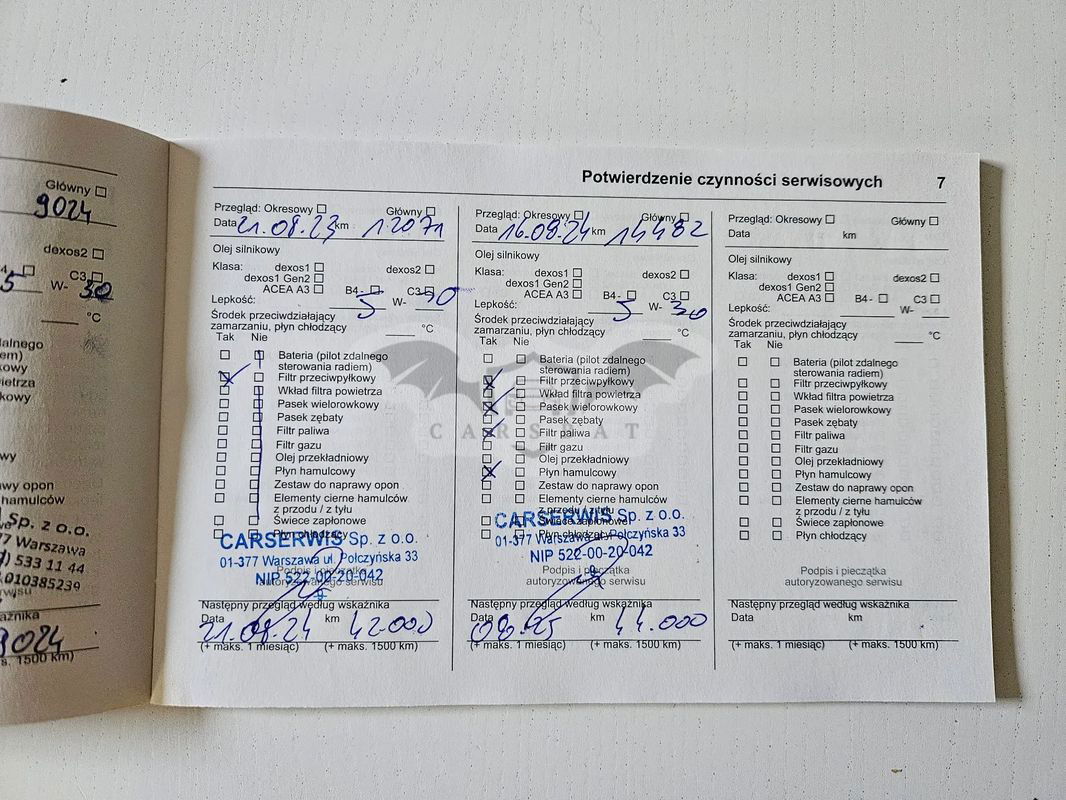 Główny
9024
dexos2
C3
5 W- 30
°C
wy opon
hamulców
Sp. z o.o.
77 Warszawa
) 533 11 44
010385239
9024
s. 1500 km)
Potwierdzenie czynności serwisowych 7
Przegląd: Okresowy Główny
Data 21.08.23 km 12071
Olej silnikowy
Klasa: dexos1 dexos2
dexos1 Gen2
ACEA A3 B4- C3
Lepkość: 5 W- 30
Środek przeciwdziałający
zamarzaniu, płyn chłodzący °C
Tak Nie
Bateria (pilot zdalnego
sterowania radiem)
Filtr przeciwpyłkowy
Wkład filtra powietrza
Pasek wielorowkowy
Pasek zębaty
Filtr paliwa
Filtr gazu
Olej przekładniowy
Płyn hamulcowy
Zestaw do naprawy opon
Elementy cierne hamulców
z przodu / z tyłu
Świece zapłonowe
Płyn chłodzący
CARSERWIS Sp. z o.o.
01-377 Warszawa ul. Połczyńska 33
NIP 522-00-20-042
Podpis i pieczątka
autoryzowanego serwisu
Następny przegląd według wskaźnika
Data 21.08.24 km 42.000
(+ maks. 1 miesiąc) (+ maks. 1500 km)
Przegląd: Okresowy Główny
Data 16.08.24 km 14482
Olej silnikowy
Klasa: dexos1 dexos2
dexos1 Gen2
ACEA A3 B4- C3
Lepkość: 5 W- 30
Środek przeciwdziałający
zamarzaniu, płyn chłodzący °C
Tak Nie
Bateria (pilot zdalnego
sterowania radiem)
Filtr przeciwpyłkowy
Wkład filtra powietrza
Pasek wielorowkowy
Pasek zębaty
Filtr paliwa
Filtr gazu
Olej przekładniowy
Płyn hamulcowy
Zestaw do naprawy opon
Elementy cierne hamulców
z przodu / z tyłu
Świece zapłonowe
Płyn chłodzący
CARSERWIS Sp. z o.o.
01-377 Warszawa ul. Połczyńska 33
NIP 522-00-20-042
Podpis i pieczątka
autoryzowanego serwisu
Następny przegląd według wskaźnika
Data 08.25 km 44.000
(+ maks. 1 miesiąc) (+ maks. 1500 km)
Przegląd: Okresowy Główny
Data km
Olej silnikowy
Klasa: dexos1 dexos2
dexos1 Gen2
ACEA A3 B4- C3
Lepkość: W-
Środek przeciwdziałający
zamarzaniu, płyn chłodzący °C
Tak Nie
Bateria (pilot zdalnego
sterowania radiem)
Filtr przeciwpyłkowy
Wkład filtra powietrza
Pasek wielorowkowy
Pasek zębaty
Filtr paliwa
Filtr gazu
Olej przekładniowy
Płyn hamulcowy
Zestaw do naprawy opon
Elementy cierne hamulców
z przodu / z tyłu
Świece zapłonowe
Płyn chłodzący
Podpis i pieczątka
autoryzowanego serwisu
Następny przegląd według wskaźnika
Data km
(+ maks. 1 miesiąc) (+ maks. 1500 km)